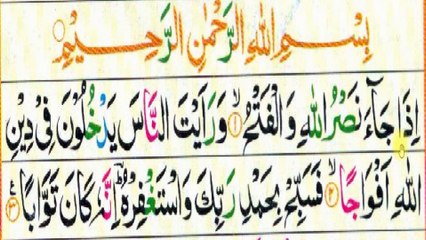 بِسْمِ اللهِ الرَّحْمٰنِ الرَّحِيْمِ
اِذَا جَآءَ نَصْرُ اللهِ وَالْفَتْحُ ۙ﴿۱﴾ وَرَاَيْتَ النَّاسَ يَدْخُلُوْنَ فِيْ دِيْنِ
اللهِ اَفْوَاجًا ۙ﴿۲﴾ فَسَبِّحْ بِحَمْدِ رَبِّكَ وَاسْتَغْفِرْهُ ؕ اِنَّهٗ كَانَ تَوَّابًا ﴿۳﴾